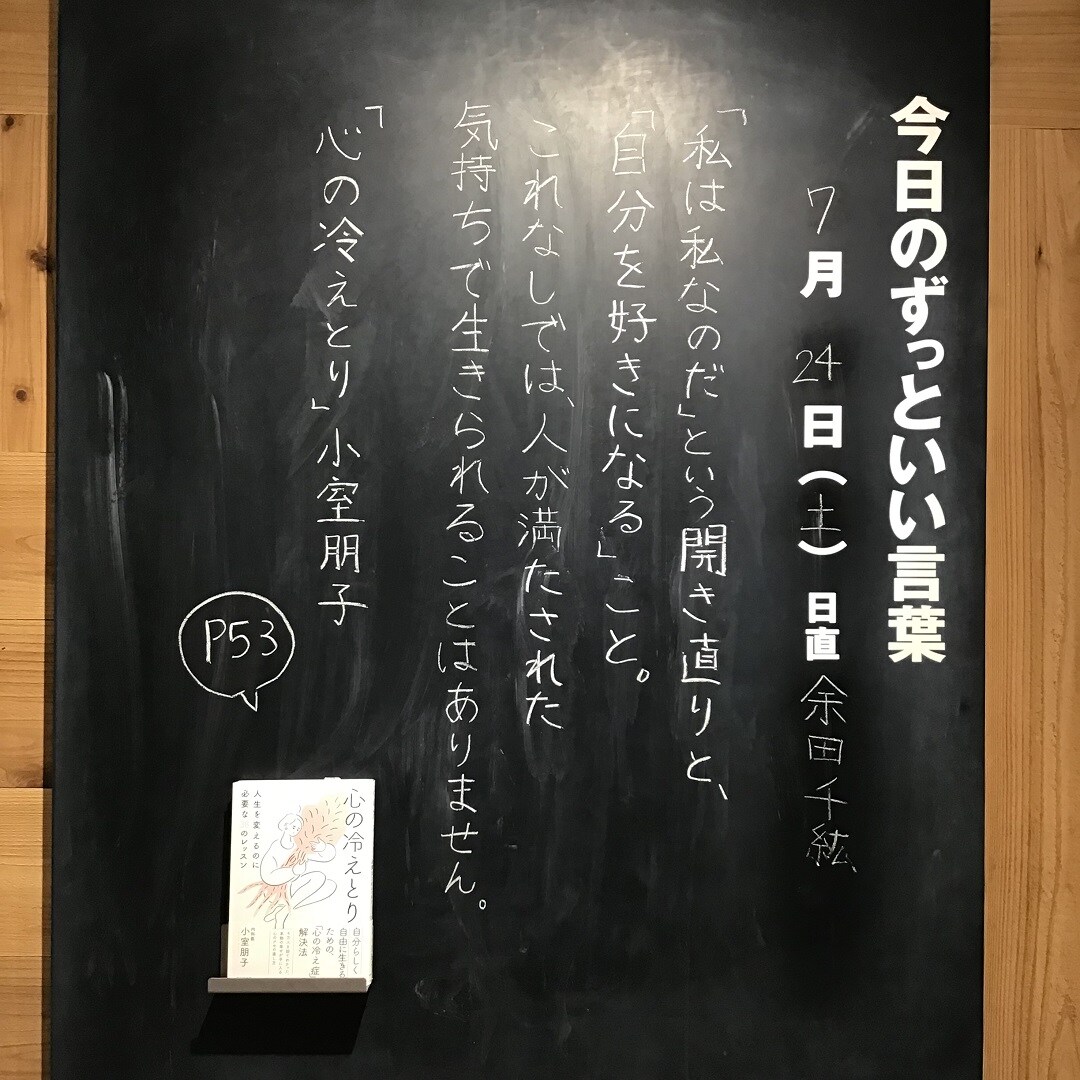 今日のずっといい言葉
7月24日(土) 日直 余田千紘
「私は私なのだ」という開き直りと、
「自分を好きになる」こと。
これなしでは、人が満たされた
気持ちで生きられることはありません。
「心の冷えとり」小室朋子
P53
心の冷えとり
自分らしく
自由に生きる
ための、
「心の冷え症」
解決法
人生を変えるのに
必要な
のレッスン
小室朋子